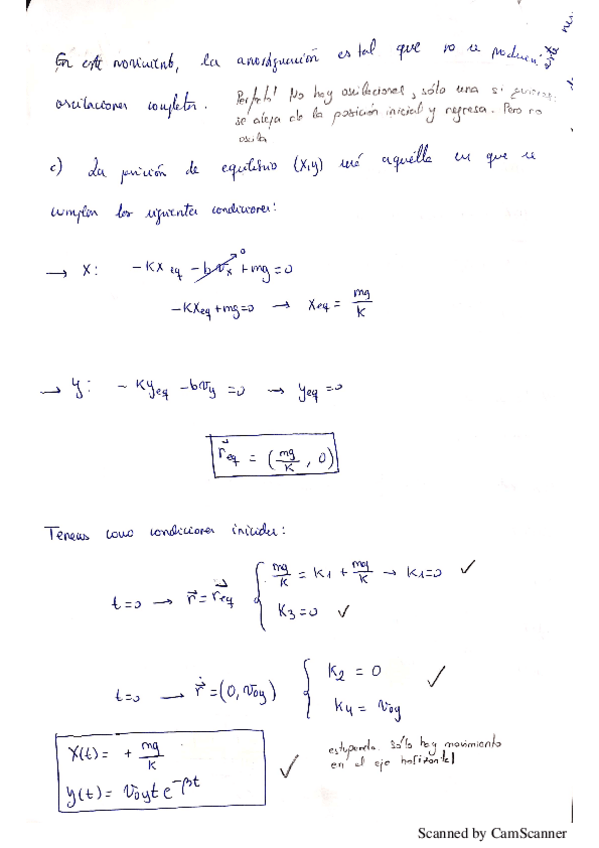 En este movimiento, la amortiguación es tal que no se producen
oscilaciones completas. Perfecto! No hay oscilaciones, sólo una
se aleja de la posición inicial y regresa. Pero no
oscila
c) La posición de equilibrio (x,y) será aquélla en que se
cumplen las siguientes condiciones:
→ X: -Kx_eq - bv_x⁰ + mg = 0
-Kx_eq + mg = 0 → x_eq = mg/K
→ y: - Ky_eq - bv_y = 0 → y_eq = 0
r⃗_eq = (mg/K, 0)
Tenemos como condiciones iniciales:
t=0 → r⃗ = r⃗_eq { mg/K = K₁ + mg/K → K₁=0 ✓
K₃=0 ✓
t=0 → ṙ⃗ = (0, v_oy) { K₂ = 0 ✓
K₄ = v_oy
X(t) = + mg/K
y(t) = v_oy t e^(-βt) ✓
estupendo. Sólo hay movimiento
en el eje horizontal
Scanned by CamScanner